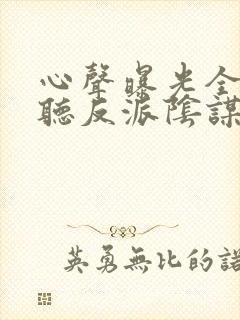 心聲曝光全
聽反派陰謀
英勇無比的諾